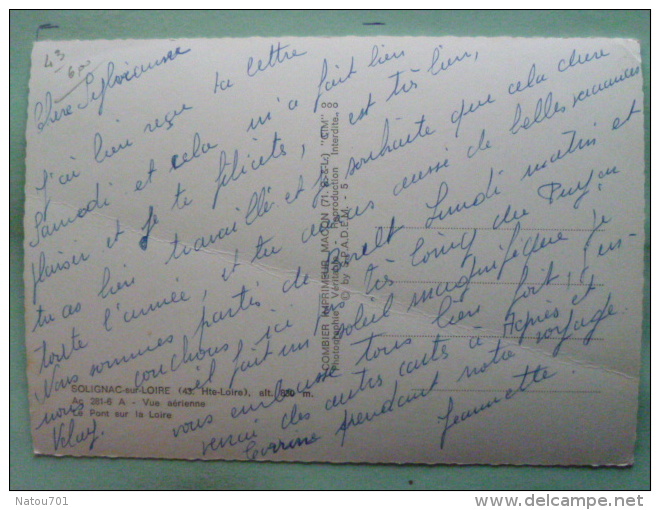 43
6,00
Chère Sylvianne
J'ai bien reçue ta lettre
Samedi et cela m'a fait bien
plaisir et je te félicites, est très bien,
tu as bien travaillé et je souhaite que cela dure
toute l'année, et tu auras aussi de belles vacances
Nous sommes partis de Lundi matin et
nous couchons ici très loin du Puy en
Velay. il fait un soleil magnifique je
vous embrasse tous bien fort,
verrai des autres carte à Agnès et
Corrine pendant notre voyage.
Jeannette.
SOLIGNAC-sur-LOIRE (43. Hte-Loire), alt. 850 m.
Ag 281-6 A - Vue aérienne
Le Pont sur la Loire
COMBIER IMPRIMEUR MACON (71. S.-&-L.) "CIM"
Photographie Véritable - Reproduction Interdite
© by S.P.A.D.E.M. - 5
Natou701
www.delcampe.net